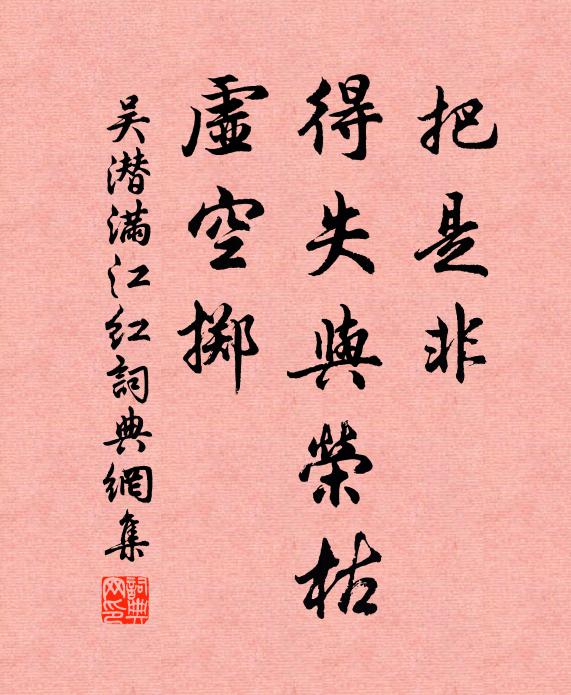 把是非
得失與榮枯
虛空擲
吴潜满江红詞典網集
詞典网印